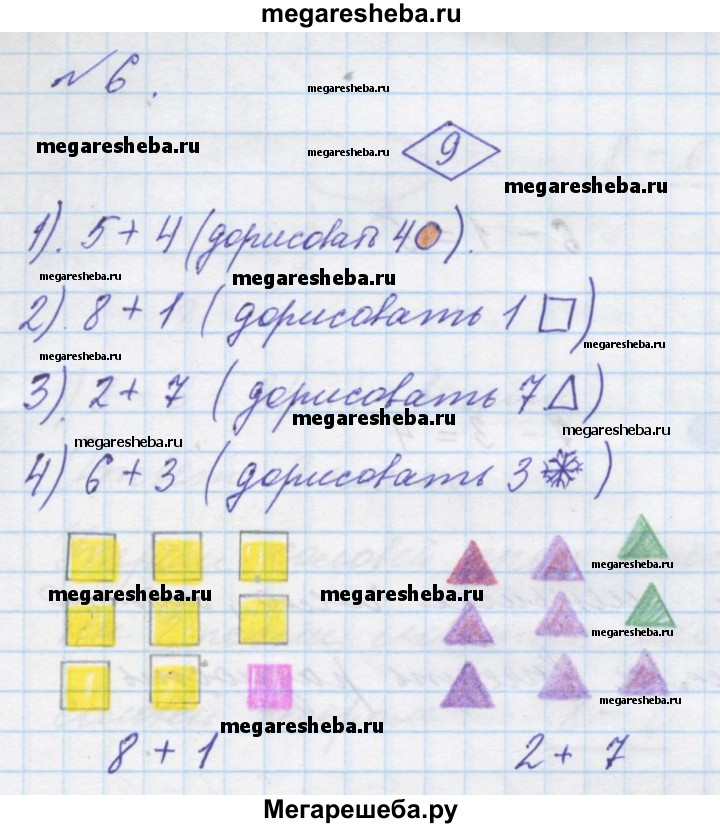 megaresheba.ru
№ 6.
megaresheba.ru
megaresheba.ru
megaresheba.ru
9
megaresheba.ru
1). 5 + 4 (дорисовать 4).
megaresheba.ru
megaresheba.ru
megaresheba.ru
2). 8 + 1 (дорисовать 1 □)
megaresheba.ru
megaresheba.ru
3). 2 + 7 (дорисовать 7 △)
megaresheba.ru
megaresheba.ru
megaresheba.ru
4) 6 + 3 (дорисовать 3 )
megaresheba.ru
megaresheba.ru
megaresheba.ru
megaresheba.ru
megaresheba.ru
megaresheba.ru
megaresheba.ru
8 + 1 2 + 7
megaresheba.ru
Мегарешеба.ру